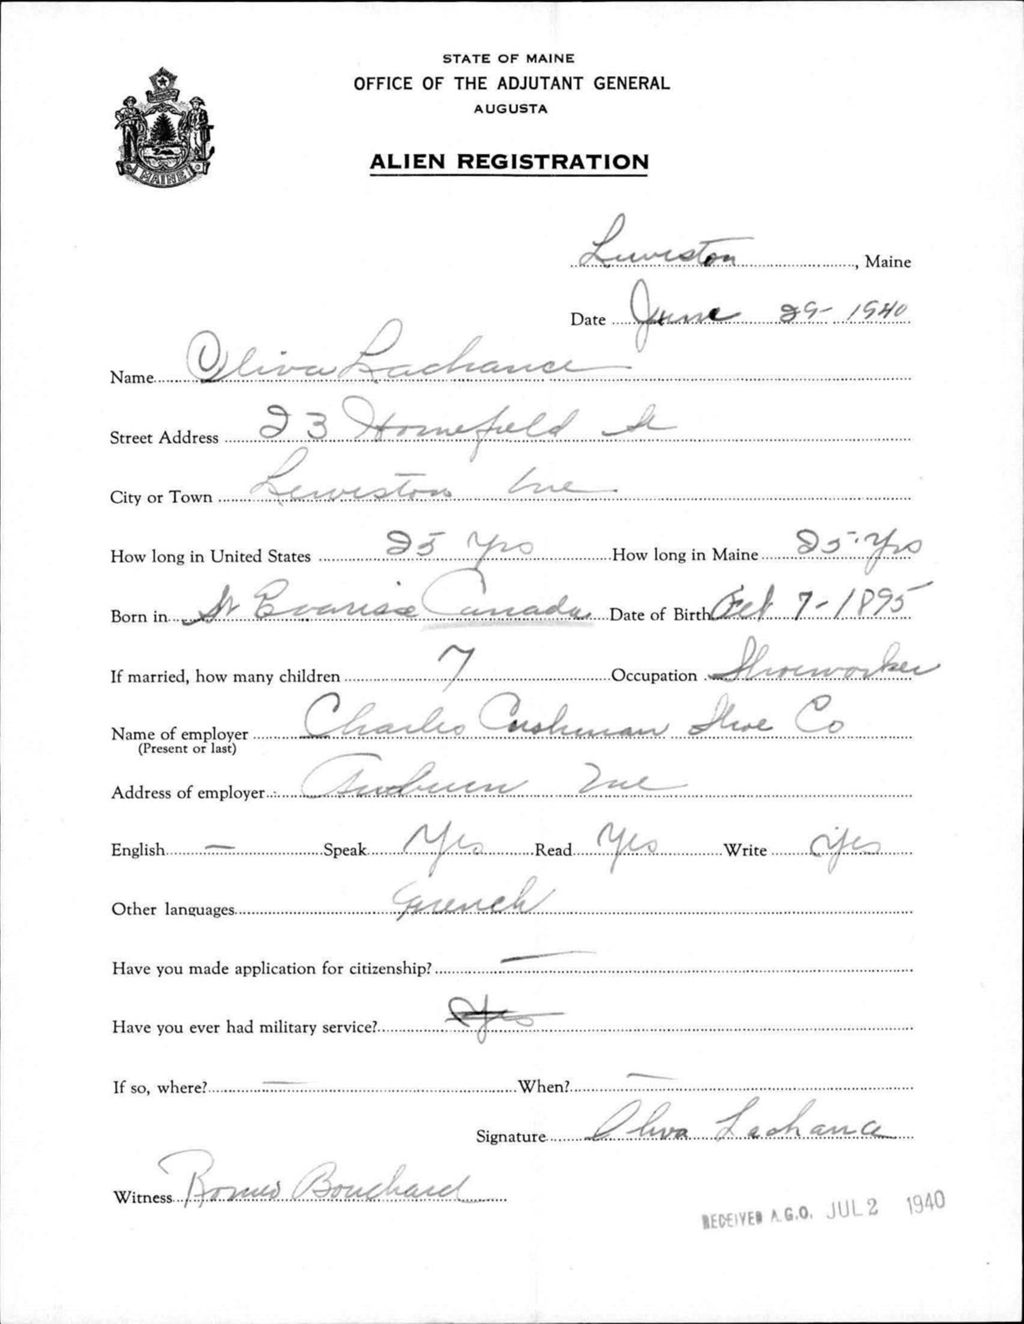 STATE OF MAINE
OFFICE OF THE ADJUTANT GENERAL
AUGUSTA
ALIEN REGISTRATION
MAINE
Lewiston, Maine
Date June 29-1940
Name Oliva Lachance
Street Address 23 Homefield St
City or Town Lewiston Me
How long in United States 25 Yrs How long in Maine 25 Yrs
Born in St Evariste Canada Date of Birth Feb 7-1895
If married, how many children 7 Occupation Shoeworker
Name of employer Charles Cushman Shoe Co
(Present or last)
Address of employer Auburn Me
English — Speak Yes Read Yes Write Yes
Other languages French
Have you made application for citizenship? —
Have you ever had military service? Yes
If so, where? — When? —
Signature Oliva Lachance
Witness Romeo Bouchard
RECEIVED A.G.O. JUL 2 1940